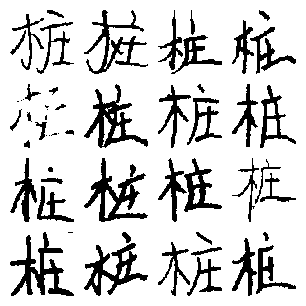 桩桩桩桩
桩桩桩桩
桩桩桩桩
桩桩桩桩